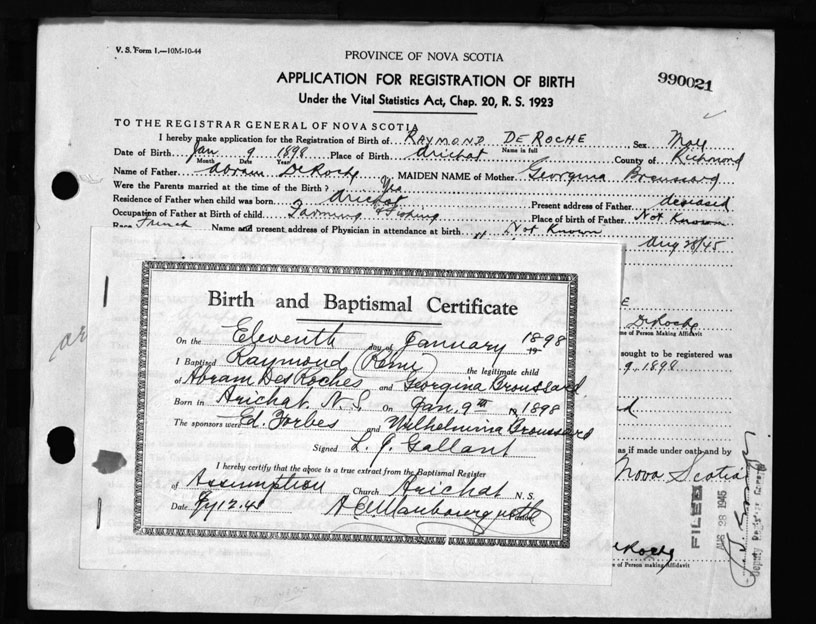 V. S. Form 1.—10M-10-44
PROVINCE OF NOVA SCOTIA
APPLICATION FOR REGISTRATION OF BIRTH
990021
Under the Vital Statistics Act, Chap. 20, R. S. 1923
TO THE REGISTRAR GENERAL OF NOVA SCOTIA
I hereby make application for the Registration of Birth of RAYMOND DEROCHE Sex Male
Name in full
Date of Birth Jan 9 1898 Place of Birth Arichat County of Richmond
Month Date Year
Name of Father Abram DeRoche MAIDEN NAME of Mother Georgina Broussard
Were the Parents married at the time of the Birth? Yes
Residence of Father when child was born Arichat Present address of Father deceased
Occupation of Father at Birth of child Farming & Fishing Place of birth of Father Not Known
French Name and present address of Physician in attendance at birth Not Known
Aug 28/45
Birth and Baptismal Certificate
On the Eleventh day of January 1898
I Baptised Raymond (Remi) the legitimate child
of Abram DesRoches and Georgina Broussard
Born in Arichat, N.S. On Jan. 9th 1898
The sponsors were Ed. Forbes and Wilhelmina Broussard
Signed L. J. Gallant
I hereby certify that the above is a true extract from the Baptismal Register
of Assumption Church Arichat N. S.
Date
Pastor
DeRoche
me of Person Making Affidavit
sought to be registered was
9, 1898
as if made under oath and by
Nova Scotia
FILED
AUG 28 1945
DeRoche
of Person making Affidavit